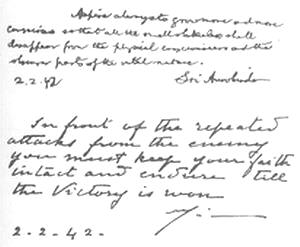 Aspire always to grow more and more
conscious so that all the small obstacles shall
disappear from the physical consciousness and the
obscurer parts of the vital nature.
2.2.42 Sri Aurobindo
In front of the repeated
attacks from the enemy
you must keep your faith
intact and endure till
the Victory is won
2-2-42-